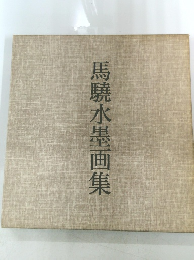 馬驍水墨画集